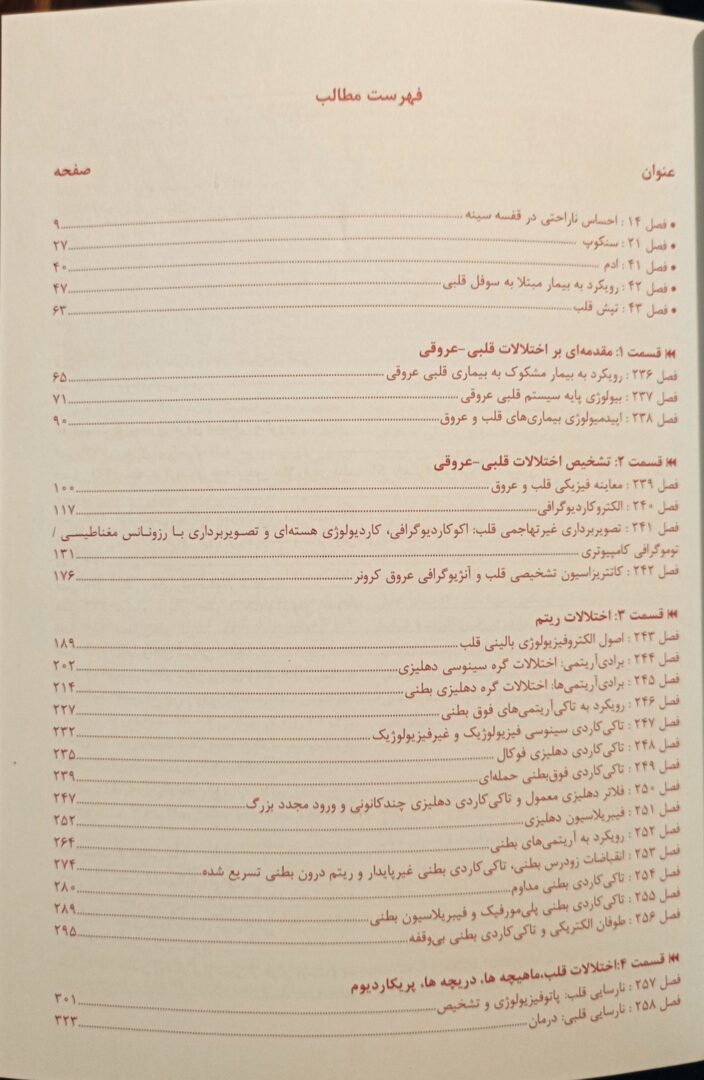 فهرست مطالب
عنوان صفحه
• فصل ۱۴ : احساس ناراحتی در قفسه سینه ۹
• فصل ۲۱ : سنکوپ ۲۷
• فصل ۴۱ : ادم ۴۰
• فصل ۴۲ : رویکرد به بیمار مبتلا به سوفل قلبی ۴۷
• فصل ۴۳ : تپش قلب ۶۳
⏮ قسمت ۱: مقدمه‌ای بر اختلالات قلبی-عروقی
فصل ۲۳۶ : رویکرد به بیمار مشکوک به بیماری قلبی عروقی ۶۵
فصل ۲۳۷ : بیولوژی پایه سیستم قلبی عروقی ۷۱
فصل ۲۳۸ : اپیدمیولوژی بیماری‌های قلب و عروق ۹۰
⏮ قسمت ۲: تشخیص اختلالات قلبی-عروقی
فصل ۲۳۹ : معاینه فیزیکی قلب و عروق ۱۰۰
فصل ۲۴۰ : الکتروکاردیوگرافی ۱۱۷
فصل ۲۴۱ : تصویربرداری غیرتهاجمی قلب: اکوکاردیوگرافی، کاردیولوژی هسته‌ای و تصویربرداری با رزونانس مغناطیسی /
توموگرافی کامپیوتری ۱۳۱
فصل ۲۴۲ : کاتتریزاسیون تشخیصی قلب و آنژیوگرافی عروق کرونر ۱۷۶
⏮ قسمت ۳: اختلالات ریتم
فصل ۲۴۳ : اصول الکتروفیزیولوژی بالینی قلب ۱۸۹
فصل ۲۴۴ : برادی‌آریتمی: اختلالات گره سینوسی دهلیزی ۲۰۲
فصل ۲۴۵ : برادی‌آریتمی‌ها: اختلالات گره دهلیزی بطنی ۲۱۴
فصل ۲۴۶ : رویکرد به تاکی‌آریتمی‌های فوق بطنی ۲۲۷
فصل ۲۴۷ : تاکی‌کاردی سینوسی فیزیولوژیک و غیرفیزیولوژیک ۲۳۲
فصل ۲۴۸ : تاکی‌کاردی دهلیزی فوکال ۲۳۵
فصل ۲۴۹ : تاکی‌کاردی فوق‌بطنی حمله‌ای ۲۳۹
فصل ۲۵۰ : فلاتر دهلیزی معمول و تاکی‌کاردی دهلیزی چندکانونی و ورود مجدد بزرگ ۲۴۷
فصل ۲۵۱ : فیبریلاسیون دهلیزی ۲۵۲
فصل ۲۵۲ : رویکرد به آریتمی‌های بطنی ۲۶۴
فصل ۲۵۳ : انقباضات زودرس بطنی، تاکی‌کاردی بطنی غیرپایدار و ریتم درون بطنی تسریع شده ۲۷۴
فصل ۲۵۴ : تاکی‌کاردی بطنی مداوم ۲۸۰
فصل ۲۵۵ : تاکی‌کاردی بطنی پلی‌مورفیک و فیبریلاسیون بطنی ۲۸۹
فصل ۲۵۶ : طوفان الکتریکی و تاکی‌کاردی بطنی بی‌وقفه ۲۹۵
⏮ قسمت ۴:اختلالات قلب،ماهیچه ها، دریچه ها، پریکاردیوم
فصل ۲۵۷ : نارسایی قلب: پاتوفیزیولوژی و تشخیص ۳۰۱
فصل ۲۵۸ : نارسایی قلبی: درمان ۳۲۳